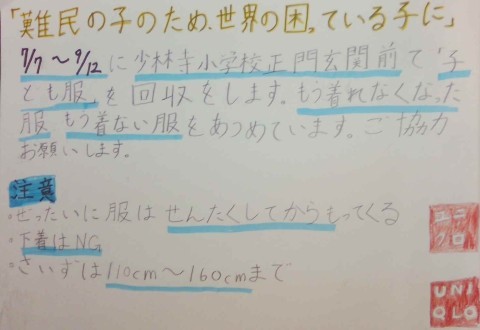 「難民の子のため、世界の困っている子に」
7/7〜9/12に少林寺小学校正門玄関前で「子
ども服」を回収をします。もう着れなくなった
服、もう着ない服をあつめています。ご協力
お願いします。
注意
・ぜったいに服はせんたくしてからもってくる
・下着はNG
・さいずは110cm〜160cmまで
ユニ
クロ
UNI
QLO